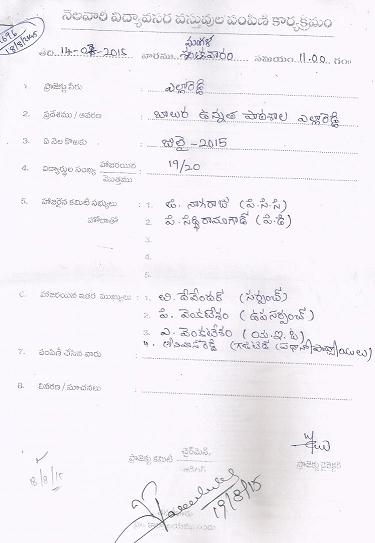 నెలవారి విద్యావసర వస్తువుల పంపిణీ కార్యక్రమం
18/8/2015
తేది. 14-07-2015 వారము శుక్రవారం సమయం 11.00 గం
1. ప్రాజెక్టు పేరు ఎల్లారెడ్డి
2. ప్రదేశము / ఆవరణ బాలుర ఉన్నత పాఠశాల ఎల్లారెడ్డి
3. ఏ నెల కొఱకు జులై-2015
4. విద్యార్థుల సంఖ్య హాజరయిన / మొత్తము 19/20
5. హాజరైన కమిటి సభ్యులు : 1. జి. నాగరాజ్ (పి.సి.సి)
హోదాతో 2. పి. సిద్ధిరాములుగౌడ్ (పి.డి)
3.
4.
5.
6. హాజరయిన ఇతర ముఖ్యులు : 1. బి. దేవేందర్ (సర్పంచ్)
2. పి. వెంకటేశం (ఉపసర్పంచ్)
3. ఎ. వెంకటేశం (యం.ఇ.ఓ)
4. (గజిటెడ్ ప్రధానోపాధ్యాయులు)
7. పంపిణీ చేసిన వారు :
8. వివరణ / సూచనలు :
ప్రాజెక్టు కమిటీ చైర్మెన్
ప్రాజెక్టు డైరెక్టర్
18/8/15
19/8/15